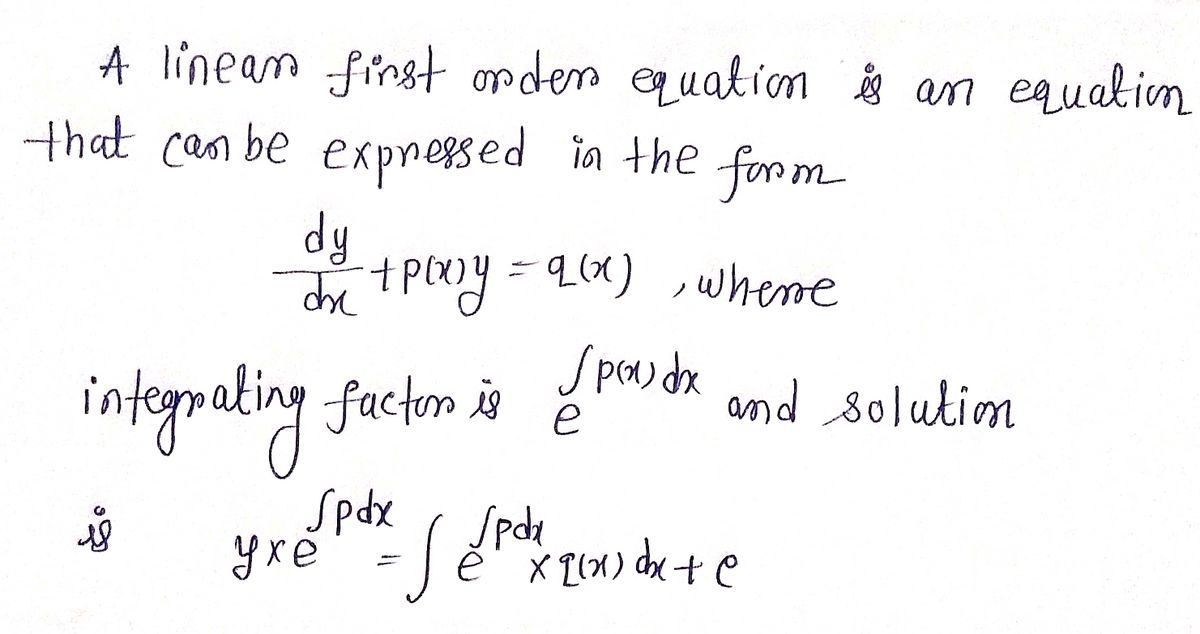 A linear first order equation is an equation
that can be expressed in the form
dy/dx + p(x)y = q(x) , where
integrating factor is e^∫p(x)dx and solution
is y × e^∫pdx = ∫ e^∫pdx × q(x) dx + c